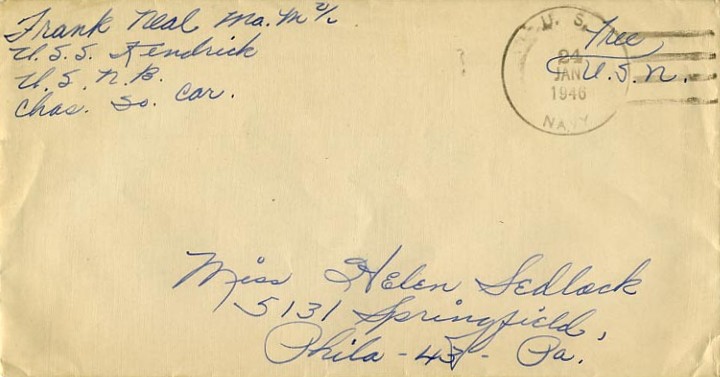 Frank Neal Mo.M 2/c
U.S.S. Kendrick
U.S.N.B.
Chas. So. Car.
U. S.
24
JAN
1946
NAVY
Free
U.S.N.
Miss Helen Sedlock
5131 Springfield,
Phila - 43 - Pa.